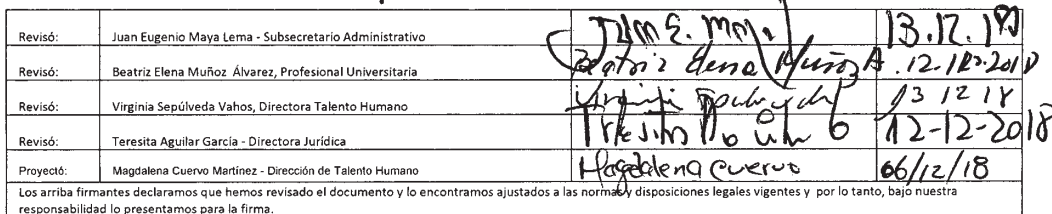 Revisó: Juan Eugenio Maya Lema - Subsecretario Administrativo
Revisó: Beatriz Elena Muñoz Álvarez, Profesional Universitaria Beatriz Elena Muñoz A. 12-12-2018
Revisó: Virginia Sepúlveda Vahos, Directora Talento Humano 13 12 18
Revisó: Teresita Aguilar García - Directora Jurídica 12-12-2018
Proyectó: Magdalena Cuervo Martínez - Dirección de Talento Humano Magdalena Cuervo 06/12/18
Los arriba firmantes declaramos que hemos revisado el documento y lo encontramos ajustados a las normas y disposiciones legales vigentes y por lo tanto, bajo nuestra
responsabilidad lo presentamos para la firma.